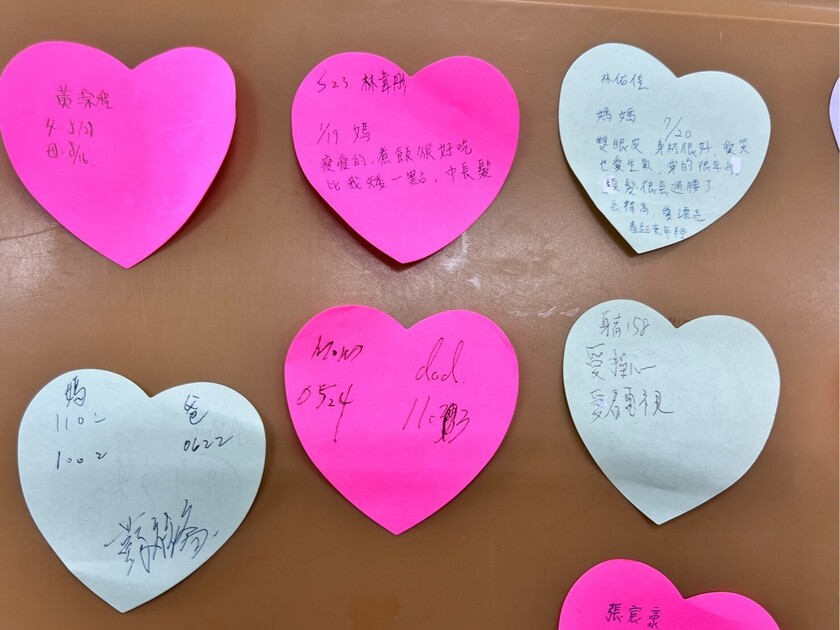 黃
父:5/29
母:8/16.
S23 林韋彤
1/19 媽
瘦瘦的,煮飯很好吃
比我矮一點,中長髮
林佑佳
媽媽 7/20
雙眼皮 身材很好 愛笑
也愛生氣,穿的很年
頭髮很長過腰了
愛漂亮
看起來年輕
媽 爸
1102 0622
1002
Mom dad.
0524
身高158
愛操心
愛看電視
張宸豪